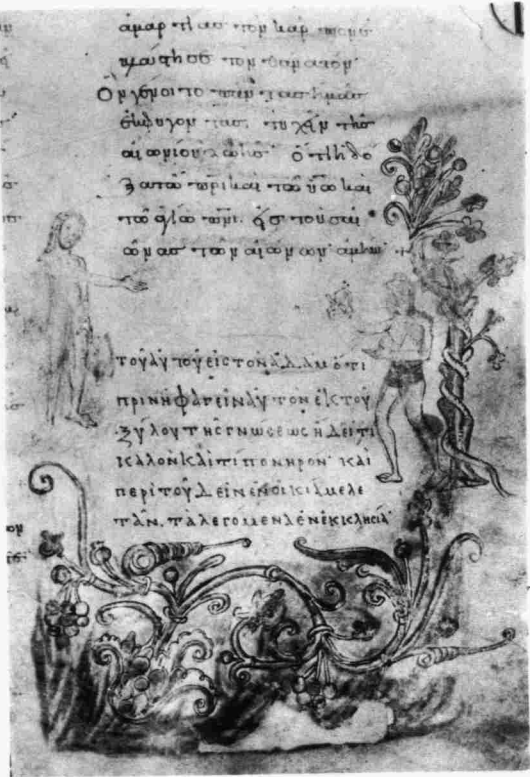 ἁμαρτίας τὸν
τὸν θάνατον·
Ὃν γένοιτο πάντας ἡμᾶς
ἐκφυγόντας, τυχεῖν τῆς
αἰωνίου ζωῆς· ὅτι ἡ δό
ξα τῷ πρὶ καὶ τῷ υἱῷ καὶ
τῷ ἁγίῳ πνι· εἰς τοὺς αἰ
ῶνας τῶν αἰώνων· ἀμήν +
ΤΟΥ ΑΥΤΟΥ ΕΙΣ ΤΟΝ ΑΔΑΜ ΟΤΙ
ΠΡΙΝ Η ΦΑΓΕΙΝ ΑΥΤΟΝ ΕΚ ΤΟΥ
ΞΥΛΟΥ ΤΗΣ ΓΝΩΣΕΩΣ ΗΔΕΙ ΤΙ
ΚΑΛΟΝ ΚΑΙ ΤΙ ΠΟΝΗΡΟΝ· ΚΑΙ
ΠΕΡΙ ΤΟΥ ΔΕΙΝ ΕΝ ΟΙΚΙΑ ΜΕΛΕ
ΤΑΝ. ΤΑ ΛΕΓΟΜΕΝΑ ΕΝ ΕΚΚΛΗΣΙΑ